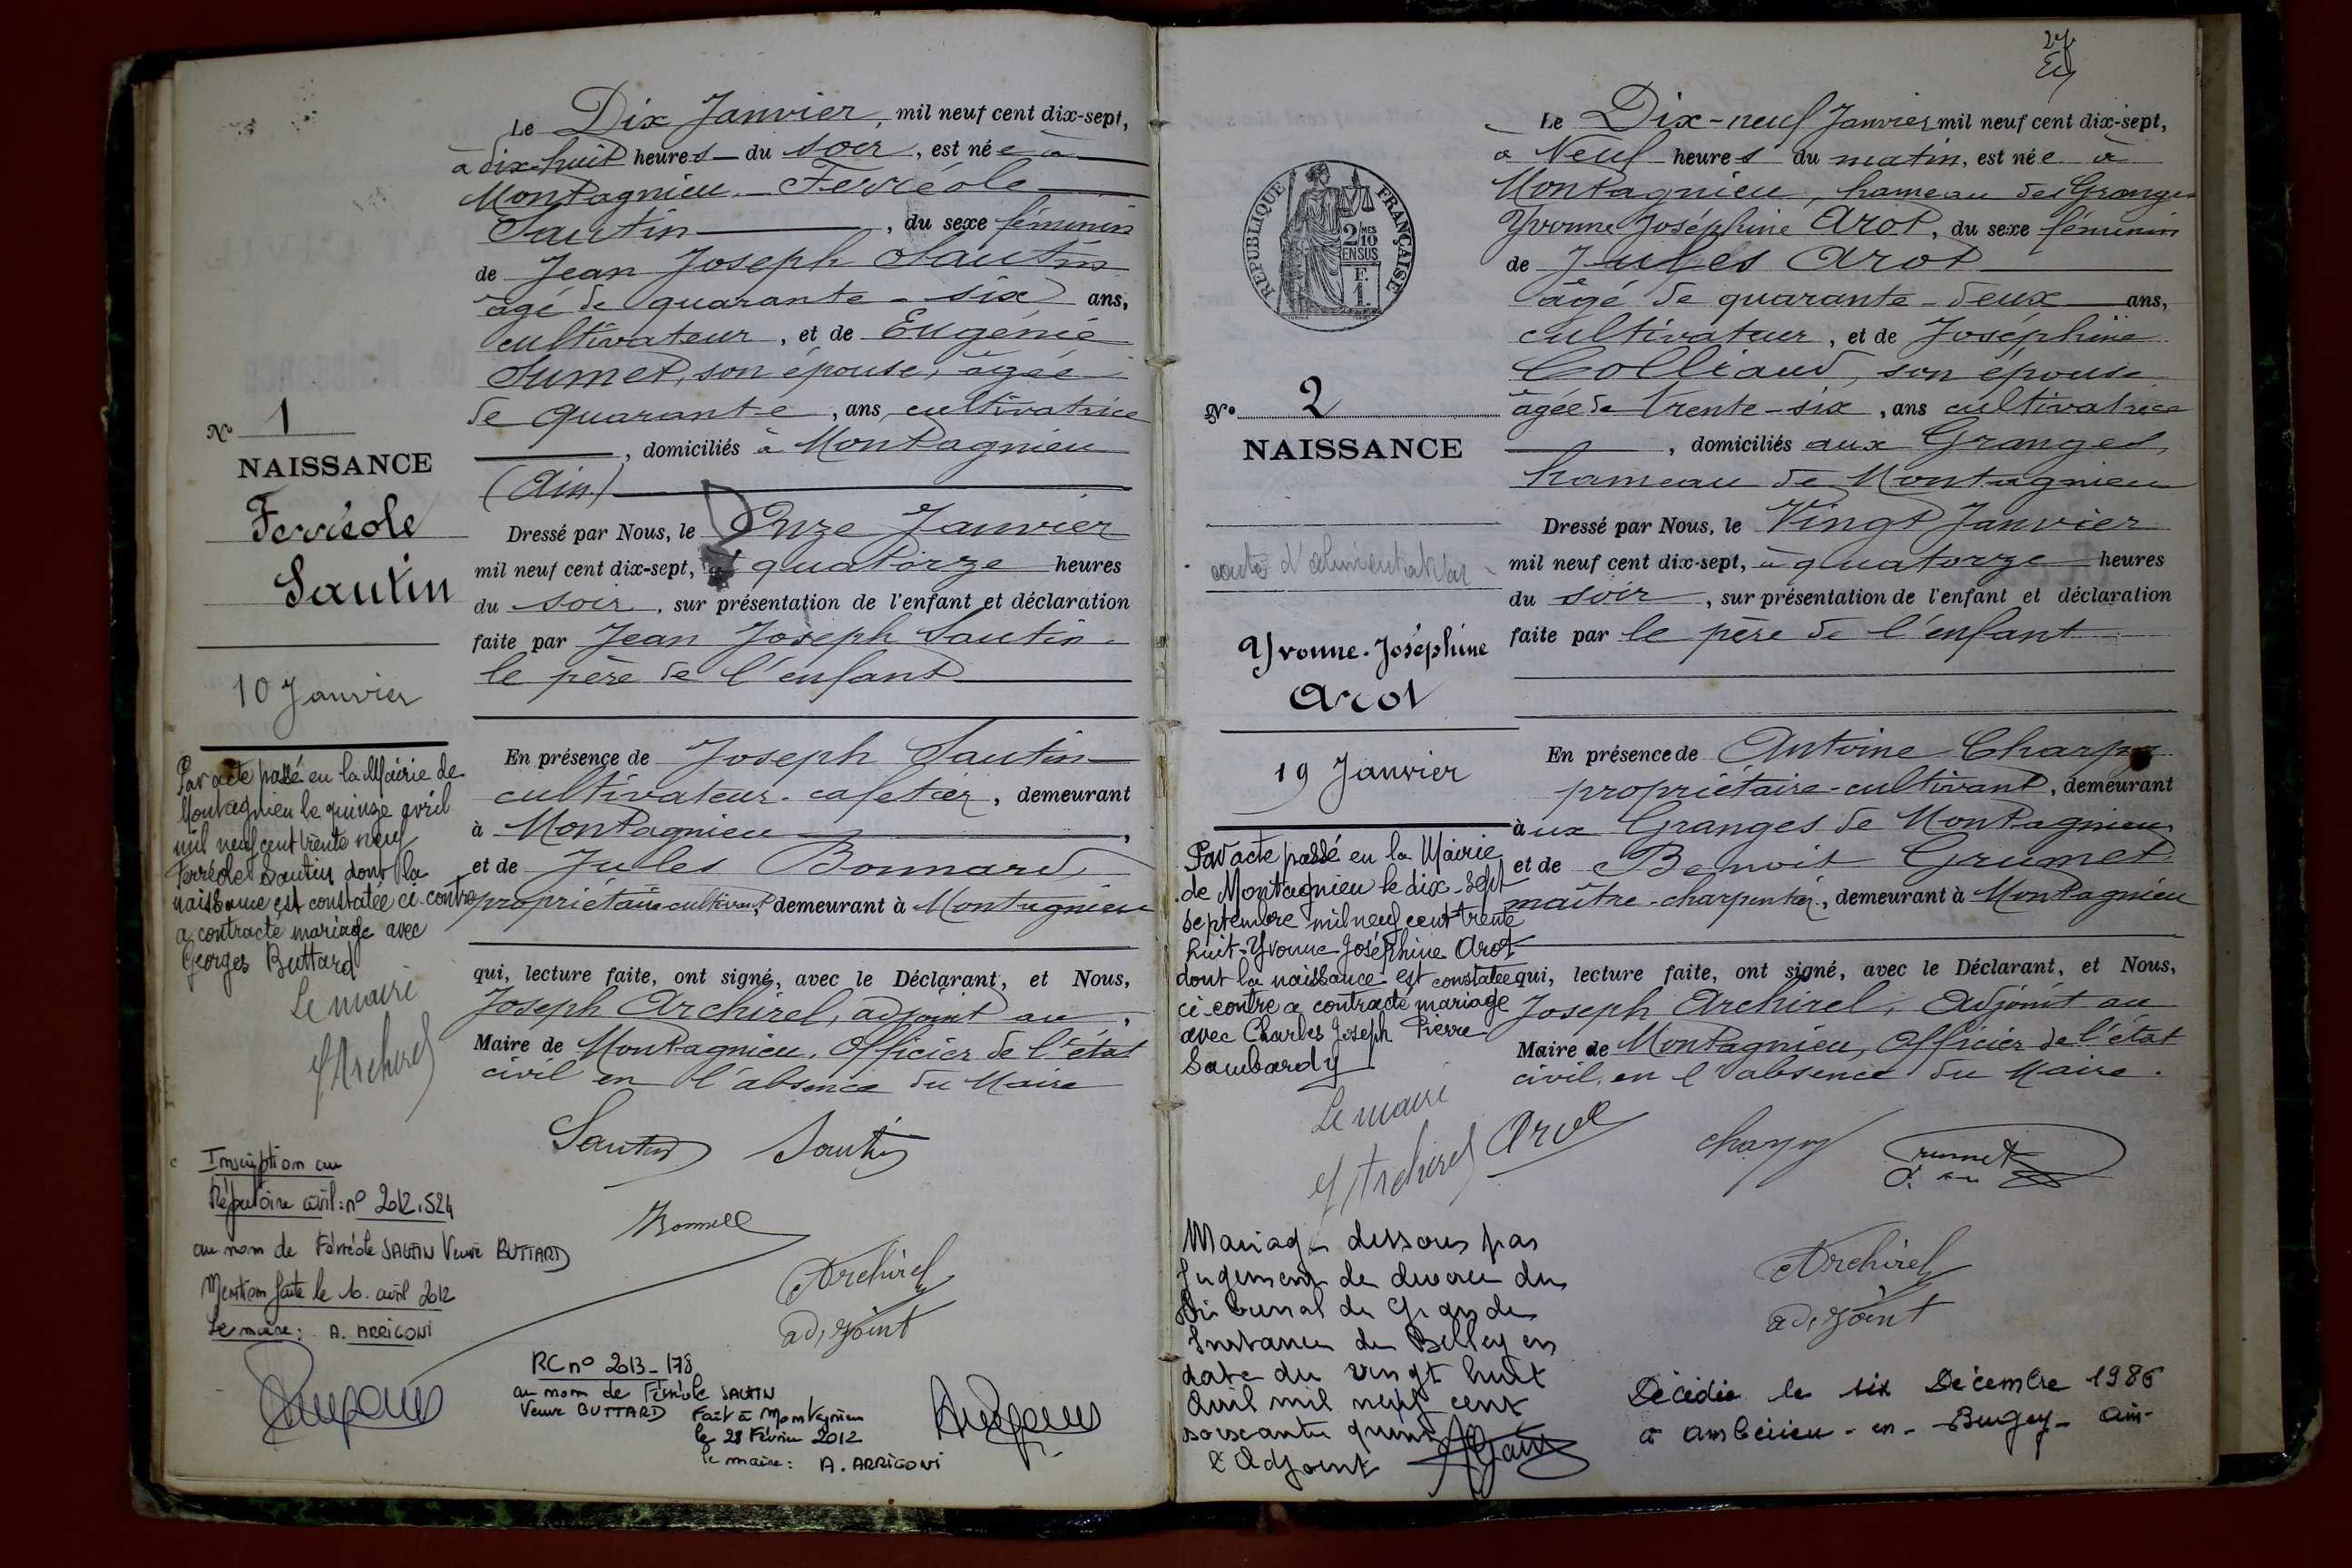 Le Dix Janvier, mil neuf cent dix-sept,
à dix-huit heures du soir, est née à
Montagnieu Ferréole
Sautin, du sexe féminin
de Jean Joseph Sautin
âgé de quarante-six ans,
cultivateur, et de Eugénie
Sumet, son épouse, âgée
de quarante, ans, cultivatrice
, domiciliés à Montagnieu
(Ain)
Dressé par Nous, le Onze Janvier
mil neuf cent dix-sept, à quatorze heures
du soir, sur présentation de l'enfant et déclaration
faite par Jean Joseph Sautin
le père de l'enfant
En présence de Joseph Sautin
cultivateur-cafetier, demeurant
à Montagnieu,
et de Jules Bonnard,
propriétaire cultivant, demeurant à Montagnieu
qui, lecture faite, ont signé, avec le Déclarant, et Nous,
Joseph Archirel, adjoint au
Maire de Montagnieu, Officier de l'état
civil en l'absence du Maire
Sautin Sautin
Archirel
adjoint
N° 1
NAISSANCE
Ferréole
Sautin
10 Janvier
Par acte passé en la Mairie de
Montagnieu le quinze avril
mil neuf cent trente neuf
Ferréole Sautin dont la
naissance est constatée ci-contre
a contracté mariage avec
Georges Buttard
Le maire
J Archirel
Inscription au
Répertoire civil: n° 2012.524
au nom de Ferréole SAUTIN Veuve BUTTARD
Mention faite le 10 avril 2012
Le maire: A. ARRIGONI
RC n° 2013-178
au nom de Ferréole SAUTIN
Veuve BUTTARD
Fait à Montagnieu
le 28 Février 2012
le maire: A. ARRIGONI
27
Le Dix-neuf Janvier mil neuf cent dix-sept,
à Neuf heures du matin, est née à
Montagnieu, hameau des Granges
Yvonne Joséphine Arot, du sexe féminin
de Jules Arot
âgé de quarante-deux ans,
cultivateur, et de Joséphine
Colliaud, son épouse
âgée de trente-six, ans cultivatrice
, domiciliés aux Granges,
hameau de Montagnieu
Dressé par Nous, le Vingt Janvier
mil neuf cent dix-sept, à quatorze heures
du soir, sur présentation de l'enfant et déclaration
faite par le père de l'enfant
En présence de Antoine Charpy
propriétaire-cultivant, demeurant
aux Granges de Montagnieu
et de Benoit Grumet
maître-charpentier, demeurant à Montagnieu
qui, lecture faite, ont signé, avec le Déclarant, et Nous,
Joseph Archirel, Adjoint au
Maire de Montagnieu, Officier de l'état
civil, en l'absence du Maire.
Arot
Archirel
adjoint
Décédée le six Décembre 1986
à Ambérieu-en-Bugey-Ain-
RÉPUBLIQUE FRANÇAISE
2/10 MES
EN SUS
1 F.
N° 2
NAISSANCE
carte d'alimentation
Yvonne-Joséphine
Arot
19 Janvier
Par acte passé en la Mairie
de Montagnieu le dix-sept
septembre mil neuf cent trente
huit-Yvonne-Joséphine Arot
dont la naissance est constatée
ci-contre a contracté mariage
avec Charles Joseph Pierre
Sambardy
Le maire
J Archirel
Mariage dissous par
Jugement de divorce du
Tribunal de Grande
Instance de Belley en
date du vingt huit
Avril mil neuf cent
soixante quinze
L'Adjoint